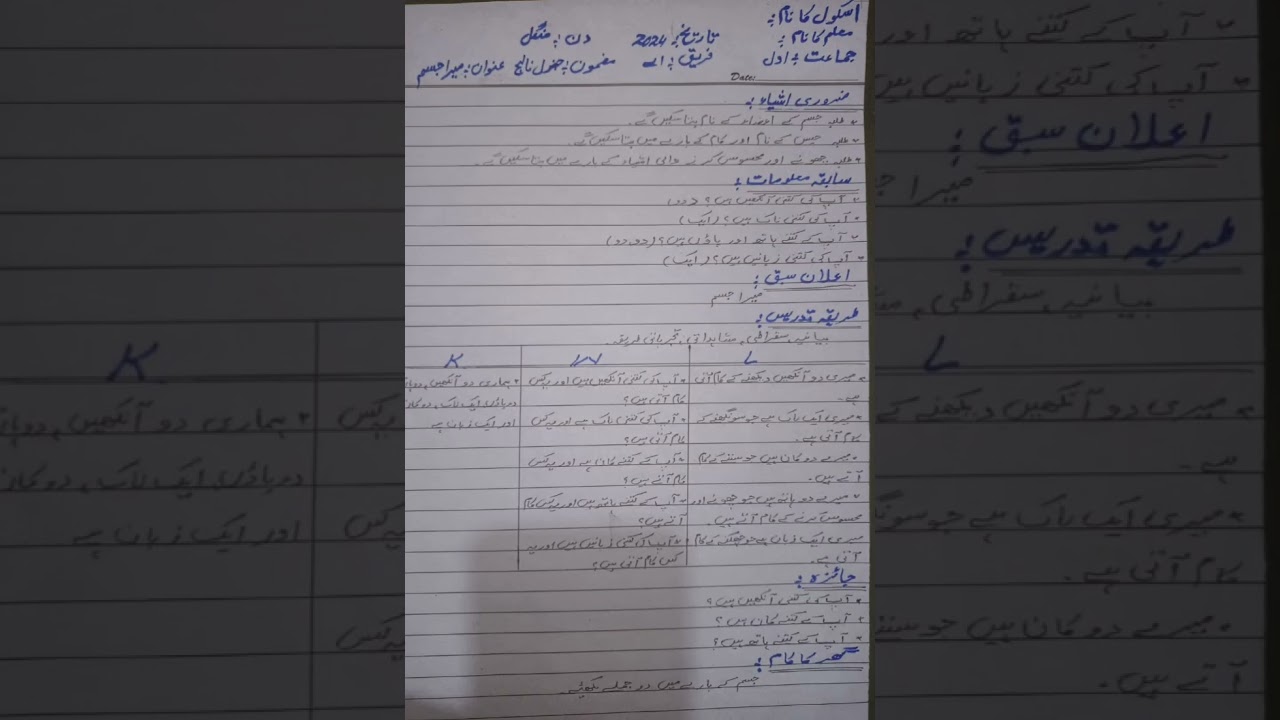 اسکول کا نام :
معلم کا نام :
تاریخ : 2024 دن : منگل
جماعت : اول فریق : اے مضمون : جنرل نالج عنوان : میرا جسم
Date:
ضروری اشیاء :
• طلبہ جسم کے اعضاء کے نام بتا سکیں گے۔
• طلبہ جس کے نام اور کام کے بارے میں بتا سکیں گے۔
• طلبہ چھونے اور محسوس کرنے والی اشیاء کے بارے میں بتا سکیں گے۔
سابقہ معلومات :
• آپ کی کتنی آنکھیں ہیں؟ (دو)
• آپ کی کتنی ناک ہیں؟ (ایک)
• آپ کے کتنے ہاتھ اور پاؤں ہیں؟ (دو، دو)
• آپ کی کتنی زبانیں ہیں؟ (ایک)
اعلان سبق :
میرا جسم
طریقہ تدریس :
بیانیہ، سقراطی، مشاہداتی، تجرباتی طریقہ
L W K
• میری دو آنکھیں دیکھنے کے کام آتی • آپ کی کتنی آنکھیں ہیں اور یہ کس • ہماری دو آنکھیں، دو
ہے۔ کام آتی ہیں؟ دو پاؤں ایک ناک، دو کان
• میری ایک ناک ہے جو سونگھنے کے • آپ کی کتنی ناک ہے اور یہ کس اور ایک زبان ہے
کام آتی ہے۔ کام آتی ہیں؟
• میرے دو کان ہیں جو سننے کے کام • آپ کے کتنے کان ہے اور یہ کس
آتے ہیں۔ کام آتے ہیں؟
• میرے دو ہاتھ ہیں جو چھونے اور • آپ کے کتنے ہاتھ ہیں اور یہ کس کام
محسوس کرنے کے کام آتے ہیں۔ آتے ہیں؟
میری ایک زبان ہے جو چکھنے کے کام • آپ کی کتنی زبانیں ہیں اور یہ
آتی ہے۔ کس کام آتی ہیں؟
جائزہ :
• آپ کی کتنی آنکھیں ہیں؟
• آپ کے کتنے کان ہیں؟
• آپ کے کتنے ہاتھ ہیں؟
گھر کا کام :
جسم کے بارے میں دو جملے لکھیئے۔